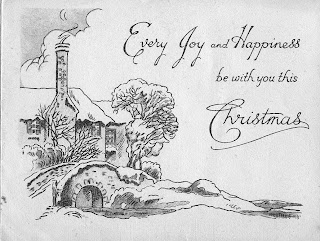 Every Joy and Happiness
be with you this
Christmas